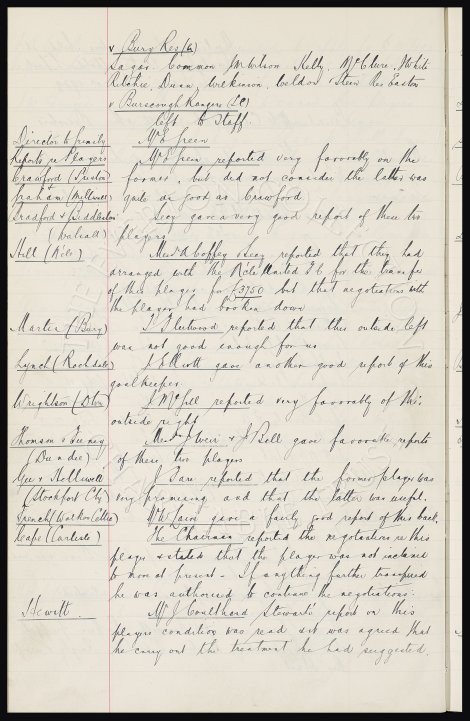 v Bury Res (h)
Sagar Common McWilson Kelly, McClure, White
Ritchie, Dunn, Wilkinson, Weldon Steen Res Easton
v Burscough Rangers (LC)
left to Staff
Director to
Reports re Players
Mr E Green
Crawford (Preston)
Mr Green reported very favorably on the
+
former, but did not consider the latter was
Graham (Millwall)
quite as good as Crawford
Bradford & Biddleston
Secy gave a very good report of these two
(Walsall)
players
Hill (R'le)
Messrs A Coffey & Secy reported that they had
arranged with the R'cle United F C for the transfer
of this player for £3750 but that negotiations with
the player had broken down
Martin (Bury)
J Fleetwood reported that this outside left
was not good enough for us
Lynch (Rochdale)
J Elliott gave another good report of this
goalkeeper
Wrightson (D'ton)
J McGill reported very favorably of this
outside right
Thomson & Feeney
Messrs Weir & J Bell gave favorable reports
(Dundee)
of these two players
Gee & Helliwell
J Dare reported that the former player was
(Stockport Cty)
very promising and that the latter was useful.
French (Workson Celtic)
Mr W Laird gave a fairly good report of this back.
Cape (Carlisle)
The Chairman reported the negotiations re this
player & stated that the player was not inclined
to move at present - If anything further transpired
he was authorised to continue the negotiations.
Hewitt
Mr J Coulthard Stewarts report on this
players condition was read & it was agreed that
he carry out the treatment he had suggested.